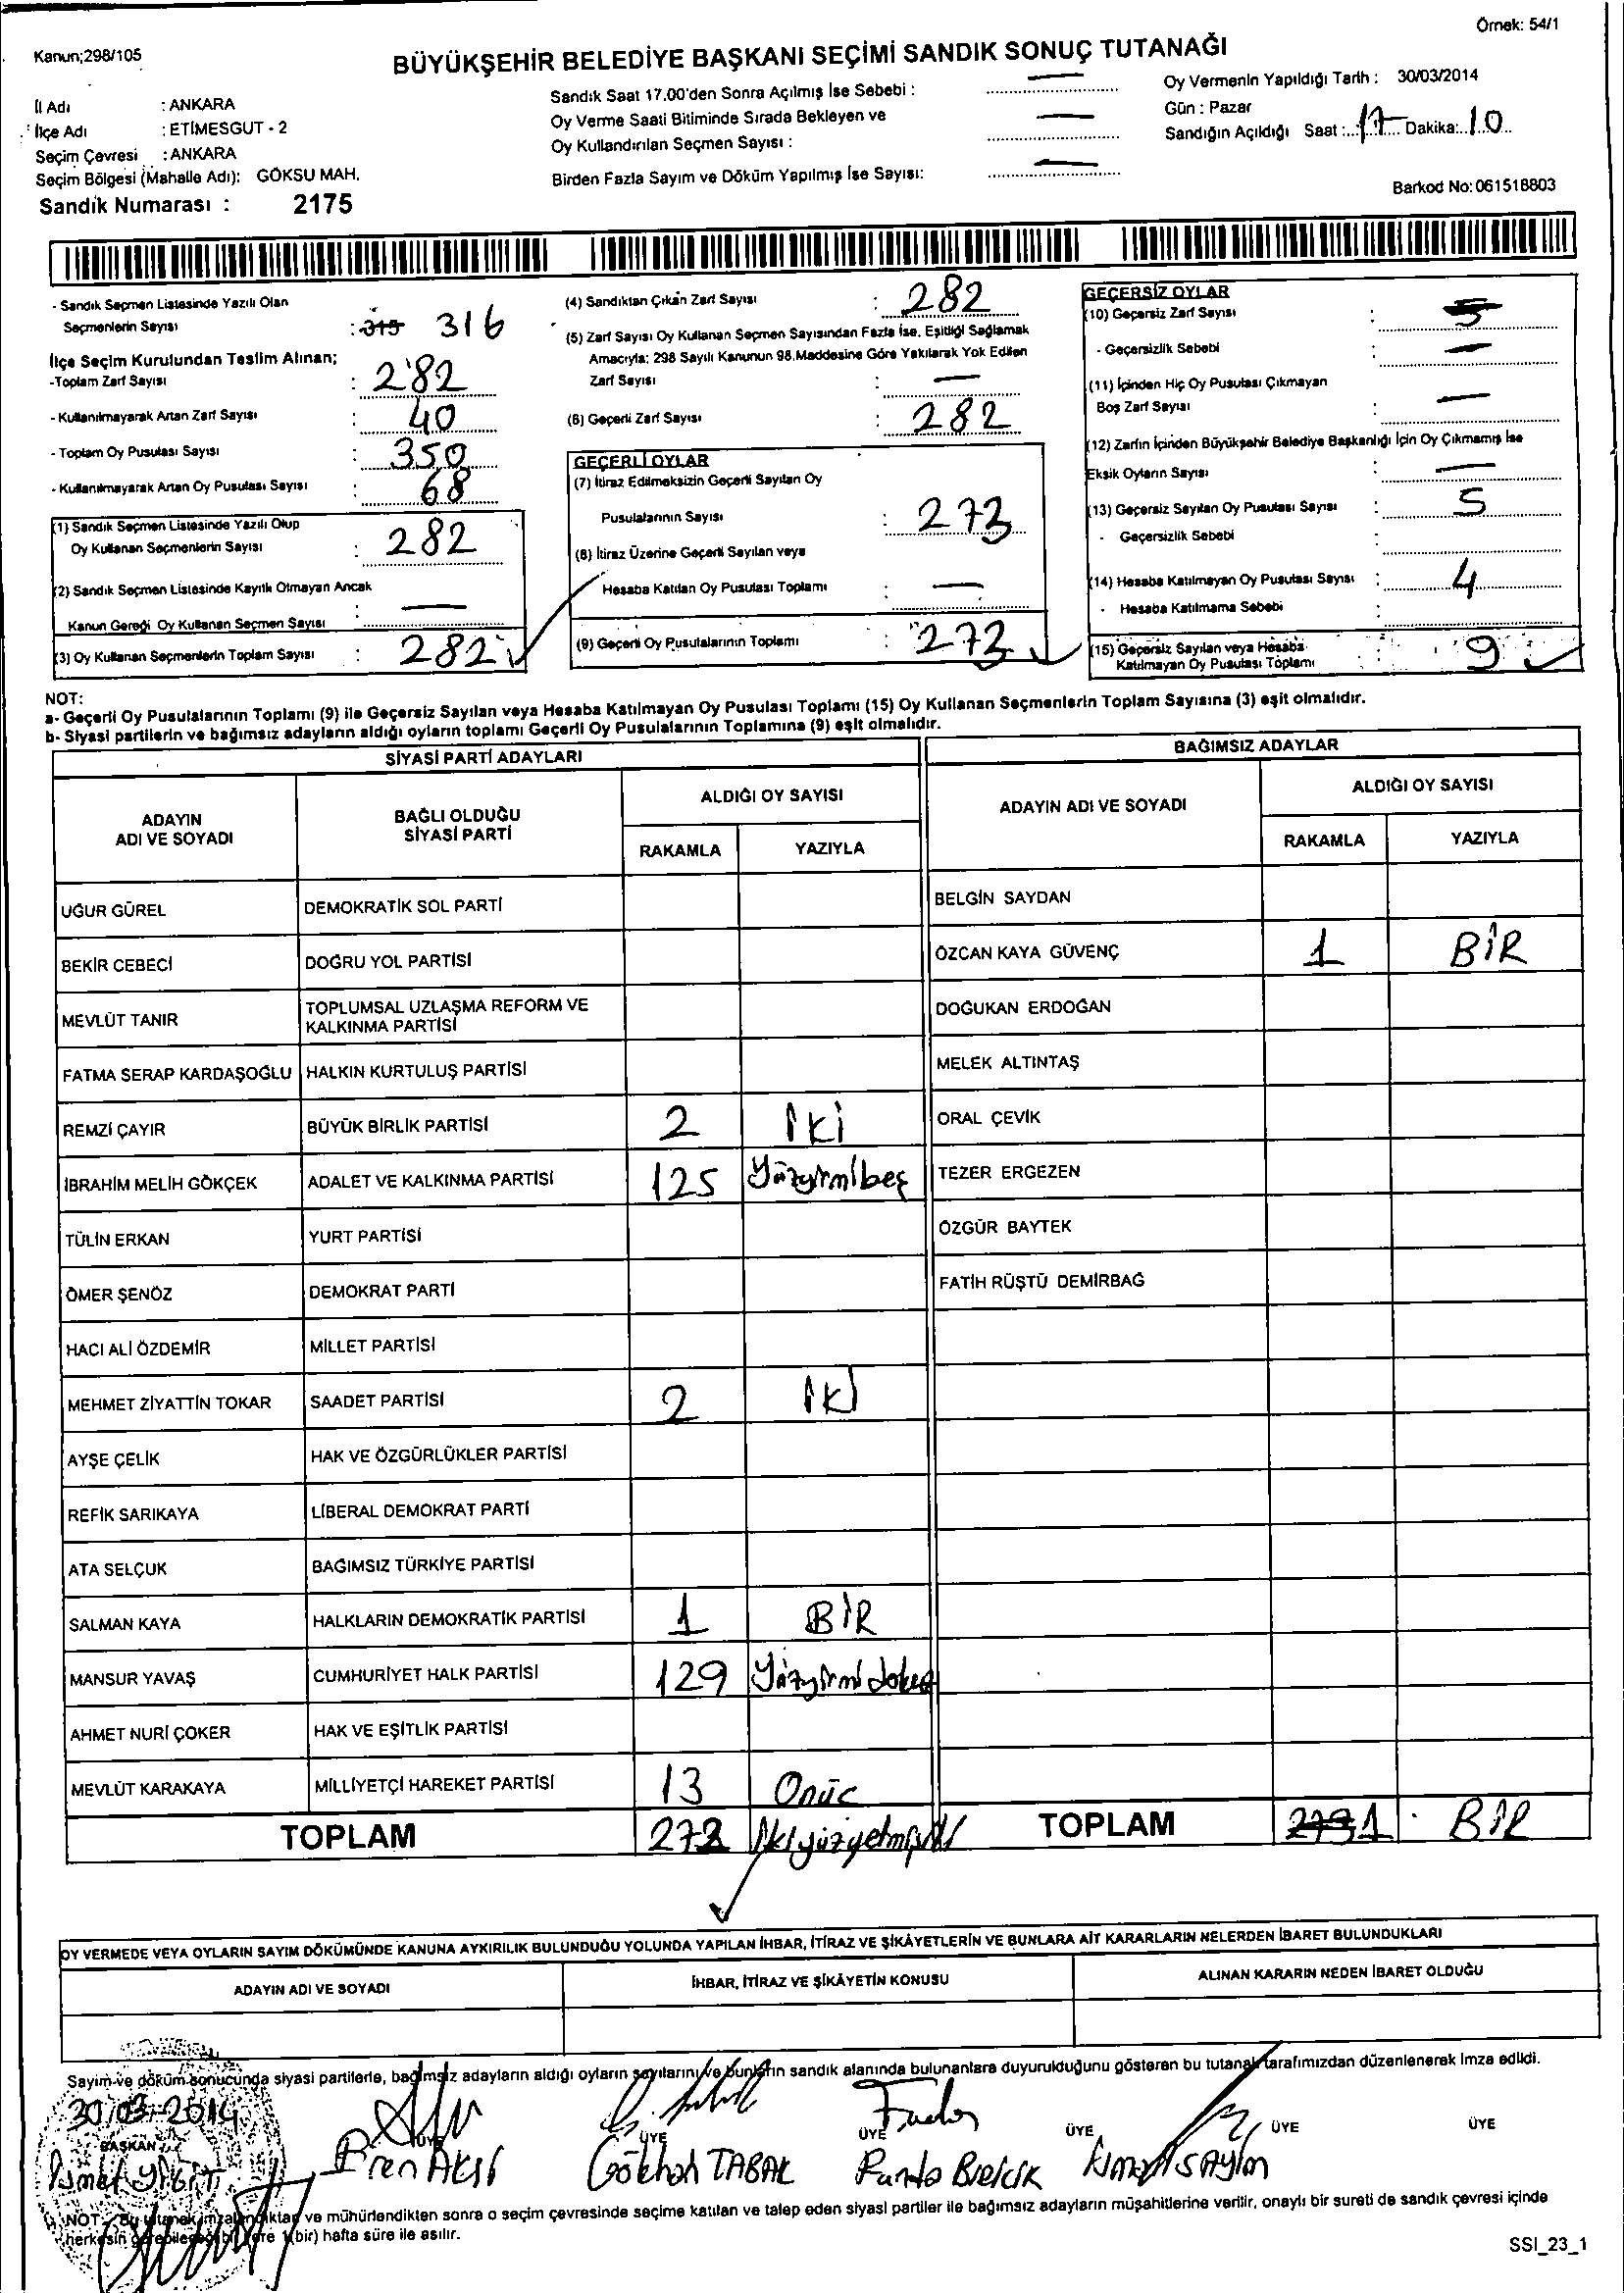 Örnek: 54/1
Kanun;298/105
BÜYÜKŞEHİR BELEDİYE BAŞKANI SEÇİMİ SANDIK SONUÇ TUTANAĞI
İl Adı : ANKARA
İlçe Adı : ETİMESGUT - 2
Seçim Çevresi : ANKARA
Seçim Bölgesi (Mahalle Adı): GÖKSU MAH.
Sandık Numarası : 2175
Sandık Saat 17.00'den Sonra Açılmış İse Sebebi : —
Oy Verme Saati Bitiminde Sırada Bekleyen ve
Oy Kullandırılan Seçmen Sayısı : —
Birden Fazla Sayım ve Döküm Yapılmış İse Sayısı: —
Oy Vermenin Yapıldığı Tarih : 30/03/2014
Gün : Pazar
Sandığın Açıldığı Saat : 17 Dakika: 10
Barkod No: 061518803
- Sandık Seçmen Listesinde Yazılı Olan
Seçmenlerin Sayısı : 315 316
İlçe Seçim Kurulundan Teslim Alınan;
-Toplam Zarf Sayısı : 282
- Kullanılmayarak Artan Zarf Sayısı : 40
- Toplam Oy Pusulası Sayısı : 350
- Kullanılmayarak Artan Oy Pusulası Sayısı : 68
(1) Sandık Seçmen Listesinde Yazılı Olup
Oy Kullanan Seçmenlerin Sayısı : 282
(2) Sandık Seçmen Listesinde Kayıtlı Olmayan Ancak
Kanun Gereği Oy Kullanan Seçmen Sayısı : —
(3) Oy Kullanan Seçmenlerin Toplam Sayısı : 282
(4) Sandıktan Çıkan Zarf Sayısı : 282
(5) Zarf Sayısı Oy Kullanan Seçmen Sayısından Fazla İse, Eşitliği Sağlamak
Amacıyla; 298 Sayılı Kanunun 98.Maddesine Göre Yakılarak Yok Edilen
Zarf Sayısı : —
(6) Geçerli Zarf Sayısı : 282
GEÇERLİ OYLAR
(7) İtiraz Edilmeksizin Geçerli Sayılan Oy
Pusulalarının Sayısı : 273
(8) İtiraz Üzerine Geçerli Sayılan veya
Hesaba Katılan Oy Pusulası Toplamı : —
(9) Geçerli Oy Pusulalarının Toplamı : 273
GEÇERSİZ OYLAR
(10) Geçersiz Zarf Sayısı : 5
- Geçersizlik Sebebi : —
(11) İçinden Hiç Oy Pusulası Çıkmayan
Boş Zarf Sayısı : —
(12) Zarfın İçinden Büyükşehir Belediye Başkanlığı İçin Oy Çıkmamış İse
Eksik Oyların Sayısı : —
(13) Geçersiz Sayılan Oy Pusulası Sayısı : 5
- Geçersizlik Sebebi :
(14) Hesaba Katılmayan Oy Pusulası Sayısı : 4
- Hesaba Katılmama Sebebi :
(15) Geçersiz Sayılan veya Hesaba
Katılmayan Oy Pusulası Toplamı : 9
NOT:
a- Geçerli Oy Pusulalarının Toplamı (9) ile Geçersiz Sayılan veya Hesaba Katılmayan Oy Pusulası Toplamı (15) Oy Kullanan Seçmenlerin Toplam Sayısına (3) eşit olmalıdır.
b- Siyasi partilerin ve bağımsız adayların aldığı oyların toplamı Geçerli Oy Pusulalarının Toplamına (9) eşit olmalıdır.
SİYASİ PARTİ ADAYLARI
ADAYIN ADI VE SOYADI BAĞLI OLDUĞU SİYASİ PARTİ ALDIĞI OY SAYISI
RAKAMLA YAZIYLA
UĞUR GÜREL DEMOKRATİK SOL PARTİ
BEKİR CEBECİ DOĞRU YOL PARTİSİ
MEVLÜT TANIR TOPLUMSAL UZLAŞMA REFORM VE KALKINMA PARTİSİ
FATMA SERAP KARDAŞOĞLU HALKIN KURTULUŞ PARTİSİ
REMZİ ÇAYIR BÜYÜK BİRLİK PARTİSİ 2 İki
İBRAHİM MELİH GÖKÇEK ADALET VE KALKINMA PARTİSİ 125 Yüzyirmibeş
TÜLİN ERKAN YURT PARTİSİ
ÖMER ŞENÖZ DEMOKRAT PARTİ
HACI ALİ ÖZDEMİR MİLLET PARTİSİ
MEHMET ZİYATTİN TOKAR SAADET PARTİSİ 2 İki
AYŞE ÇELİK HAK VE ÖZGÜRLÜKLER PARTİSİ
REFİK SARIKAYA LİBERAL DEMOKRAT PARTİ
ATA SELÇUK BAĞIMSIZ TÜRKİYE PARTİSİ
SALMAN KAYA HALKLARIN DEMOKRATİK PARTİSİ 1 BİR
MANSUR YAVAŞ CUMHURİYET HALK PARTİSİ 129 Yüzyirmi dokuz
AHMET NURİ ÇOKER HAK VE EŞİTLİK PARTİSİ
MEVLÜT KARAKAYA MİLLİYETÇİ HAREKET PARTİSİ 13 Onüç
TOPLAM 272 İkiyüzyetmişiki
BAĞIMSIZ ADAYLAR
ADAYIN ADI VE SOYADI ALDIĞI OY SAYISI
RAKAMLA YAZIYLA
BELGİN SAYDAN
ÖZCAN KAYA GÜVENÇ 1 BİR
DOĞUKAN ERDOĞAN
MELEK ALTINTAŞ
ORAL ÇEVİK
TEZER ERGEZEN
ÖZGÜR BAYTEK
FATİH RÜŞTÜ DEMİRBAĞ
TOPLAM 273 1 BİR
OY VERMEDE VEYA OYLARIN SAYIM DÖKÜMÜNDE KANUNA AYKIRILIK BULUNDUĞU YOLUNDA YAPILAN İHBAR, İTİRAZ VE ŞİKÂYETLERİN VE BUNLARA AİT KARARLARIN NELERDEN İBARET BULUNDUKLARI
ADAYIN ADI VE SOYADI İHBAR, İTİRAZ VE ŞİKÂYETİN KONUSU ALINAN KARARIN NEDEN İBARET OLDUĞU
Sayım ve döküm sonucunda siyasi partilerle, bağımsız adayların aldığı oyların sayılarını ve bunların sandık alanında bulunanlara duyurulduğunu gösteren bu tutanak tarafımızdan düzenlenerek imza edildi.
30/03/2014
BAŞKAN ÜYE ÜYE ÜYE ÜYE ÜYE ÜYE
İsmet YİĞİT Eren AKSU Gökhan TABAK
NOT: Bu tutanak imzalandıktan ve mühürlendikten sonra o seçim çevresinde seçime katılan ve talep eden siyasi partiler ile bağımsız adayların müşahitlerine verilir, onaylı bir sureti de sandık çevresi içinde
herkesin görebileceği bir yere 1 (bir) hafta süre ile asılır.
SSI_23_1